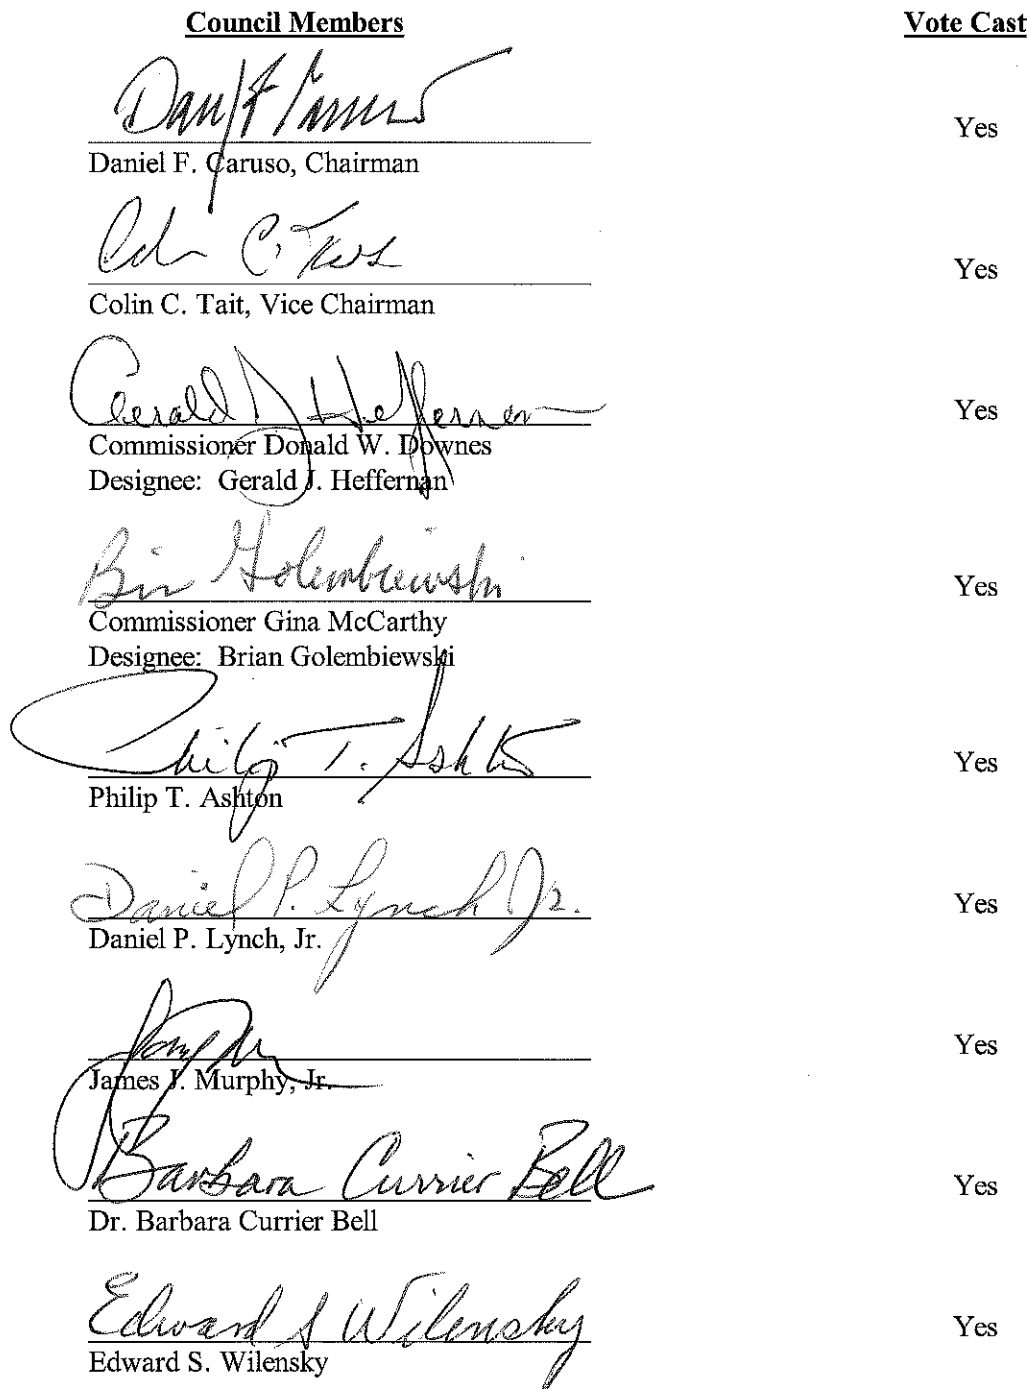 Council Members Vote Cast
Daniel F. Caruso, Chairman Yes
Colin C. Tait, Vice Chairman Yes
Gerald J Heffernan
Commissioner Donald W. Downes Yes
Designee: Gerald J. Heffernan
Golembiewski
Commissioner Gina McCarthy Yes
Designee: Brian Golembiewski
Philip T. Ashton
Philip T. Ashton Yes
Daniel P. Lynch Jr.
Daniel P. Lynch, Jr. Yes
James J. Murphy, Jr. Yes
Barbara Currier Bell
Dr. Barbara Currier Bell Yes
Edward S Wilensky
Edward S. Wilensky Yes